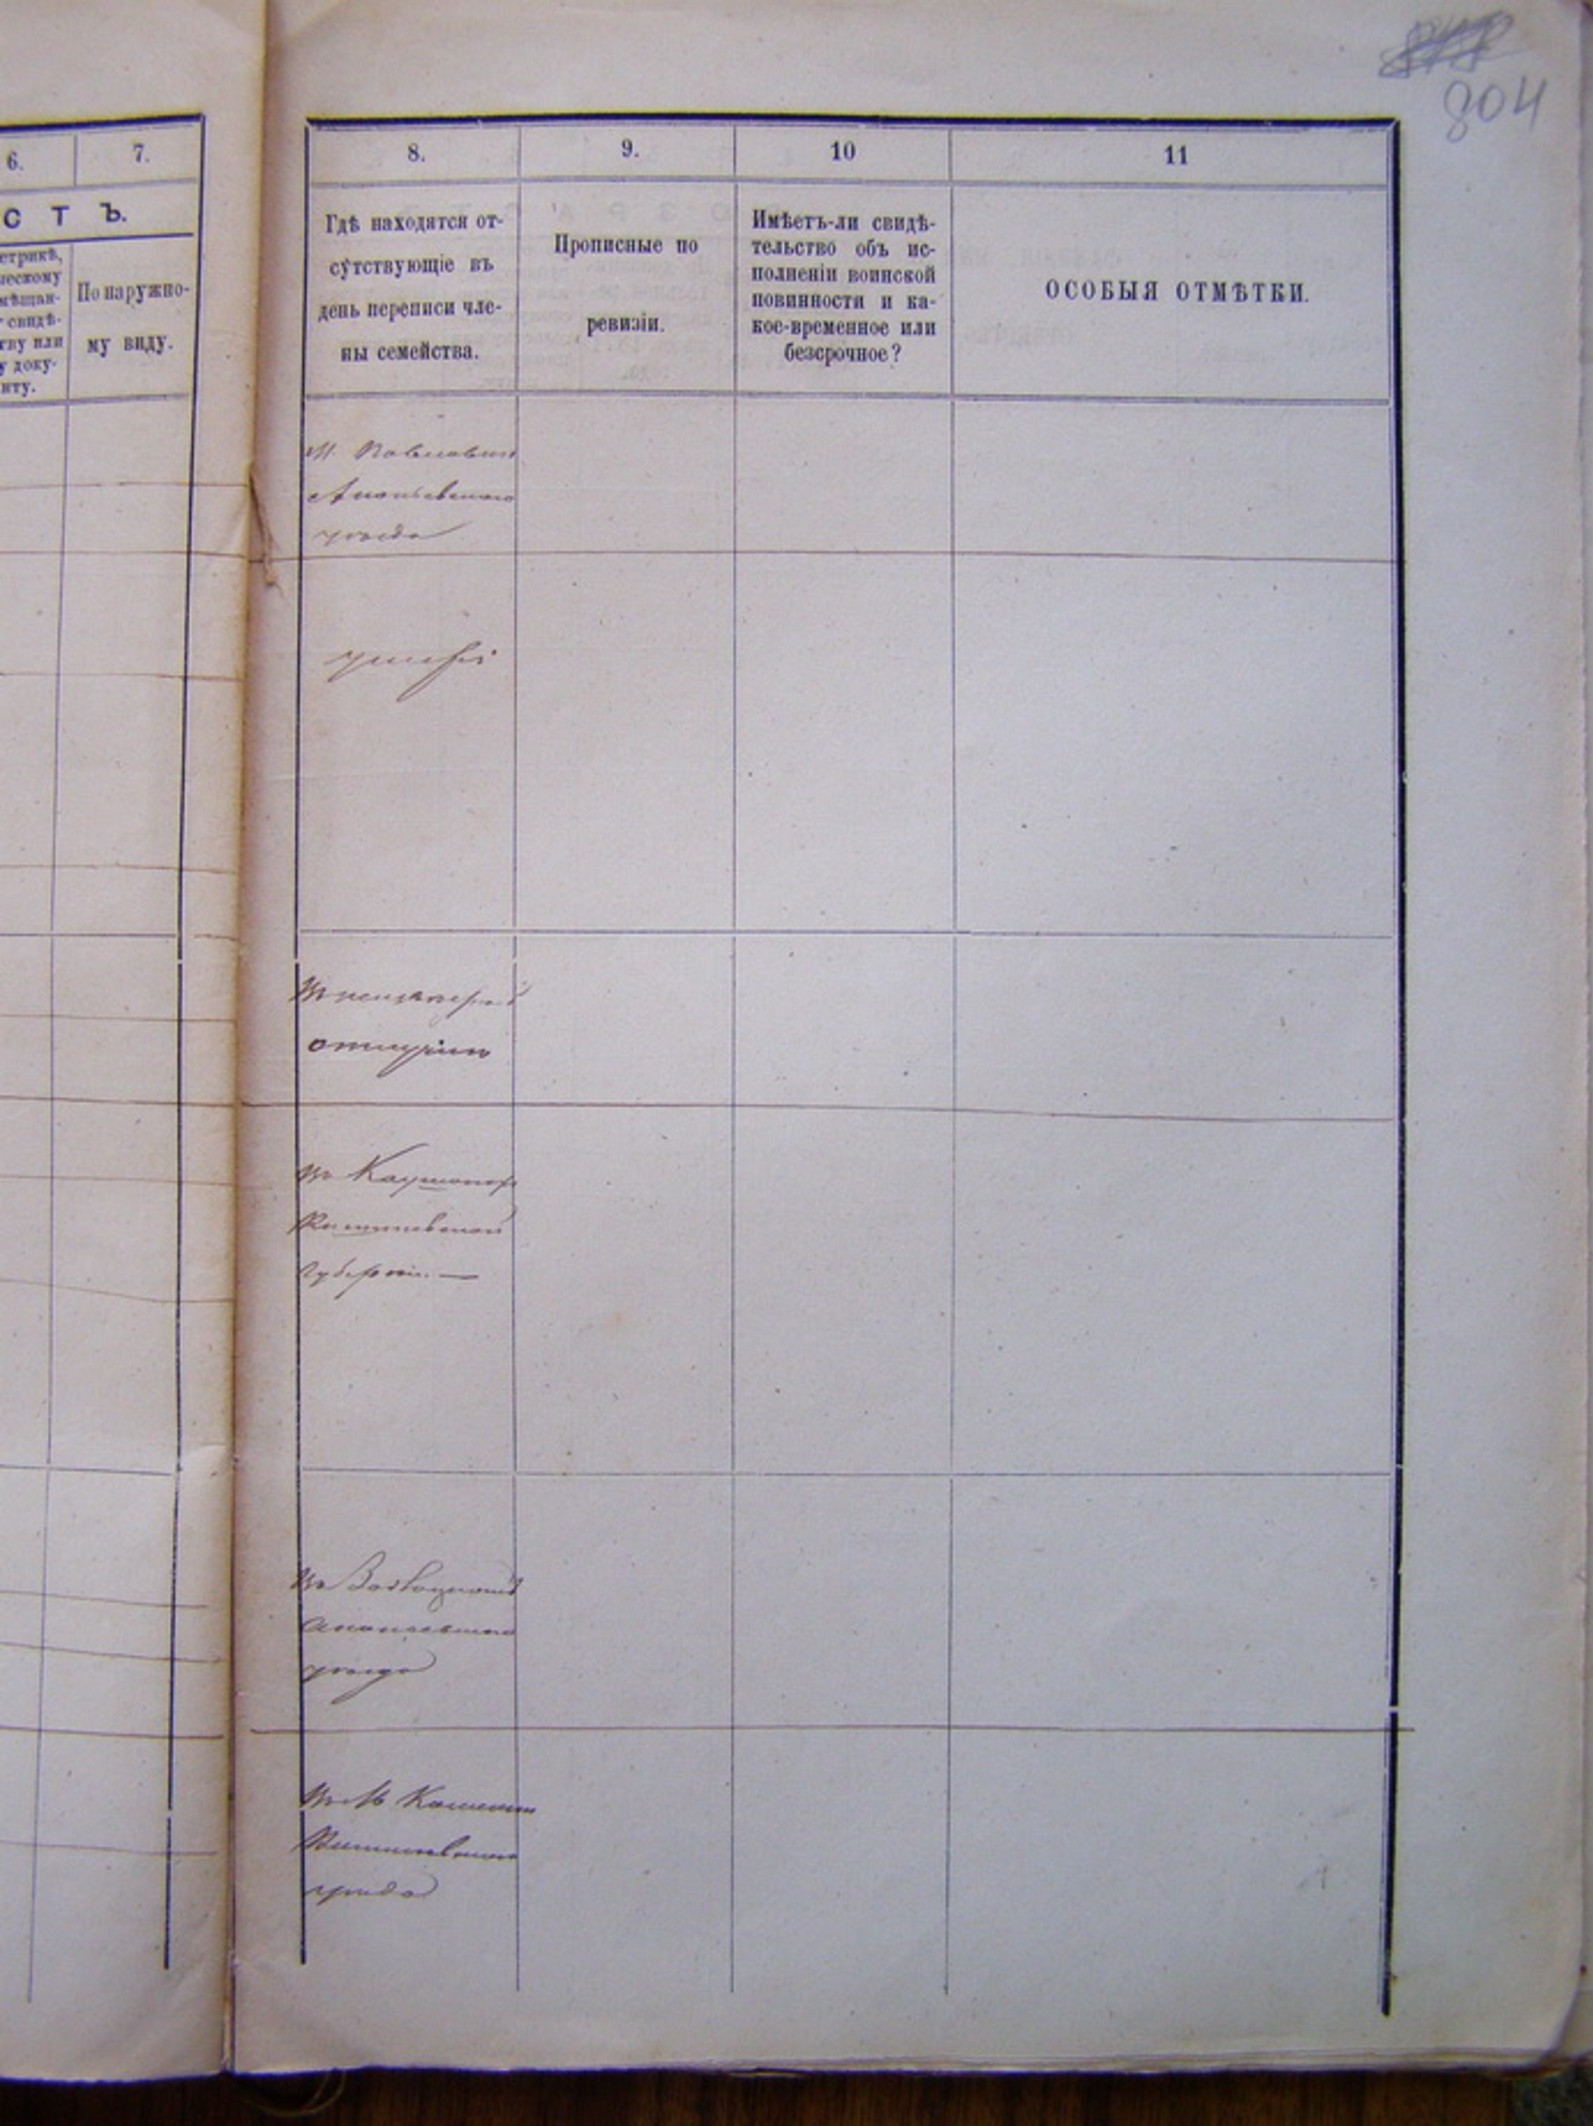 804
6.
7.
С Т Ъ.
етрикѣ,
ческому
мѣщан-
свидѣ-
тву или
у доку-
нту.
По наружно-
му виду.
8.
9.
10
11
Гдѣ находятся от-
сутствующіе въ
день переписи чле-
ны семейства.
Прописные по
ревизіи.
Имѣетъ-ли свидѣ-
тельство объ ис-
полненіи воинской
повинности и ка-
кое-временное или
безсрочное?
ОСОБЫЯ ОТМѢТКИ.
Ананьевскаго
уѣзда
умеръ
Въ
Въ
Кишиневской
Губерніи. —
Въ
Ананьевскаго
уѣзда
Въ М
Кишиневскаго
уѣзда